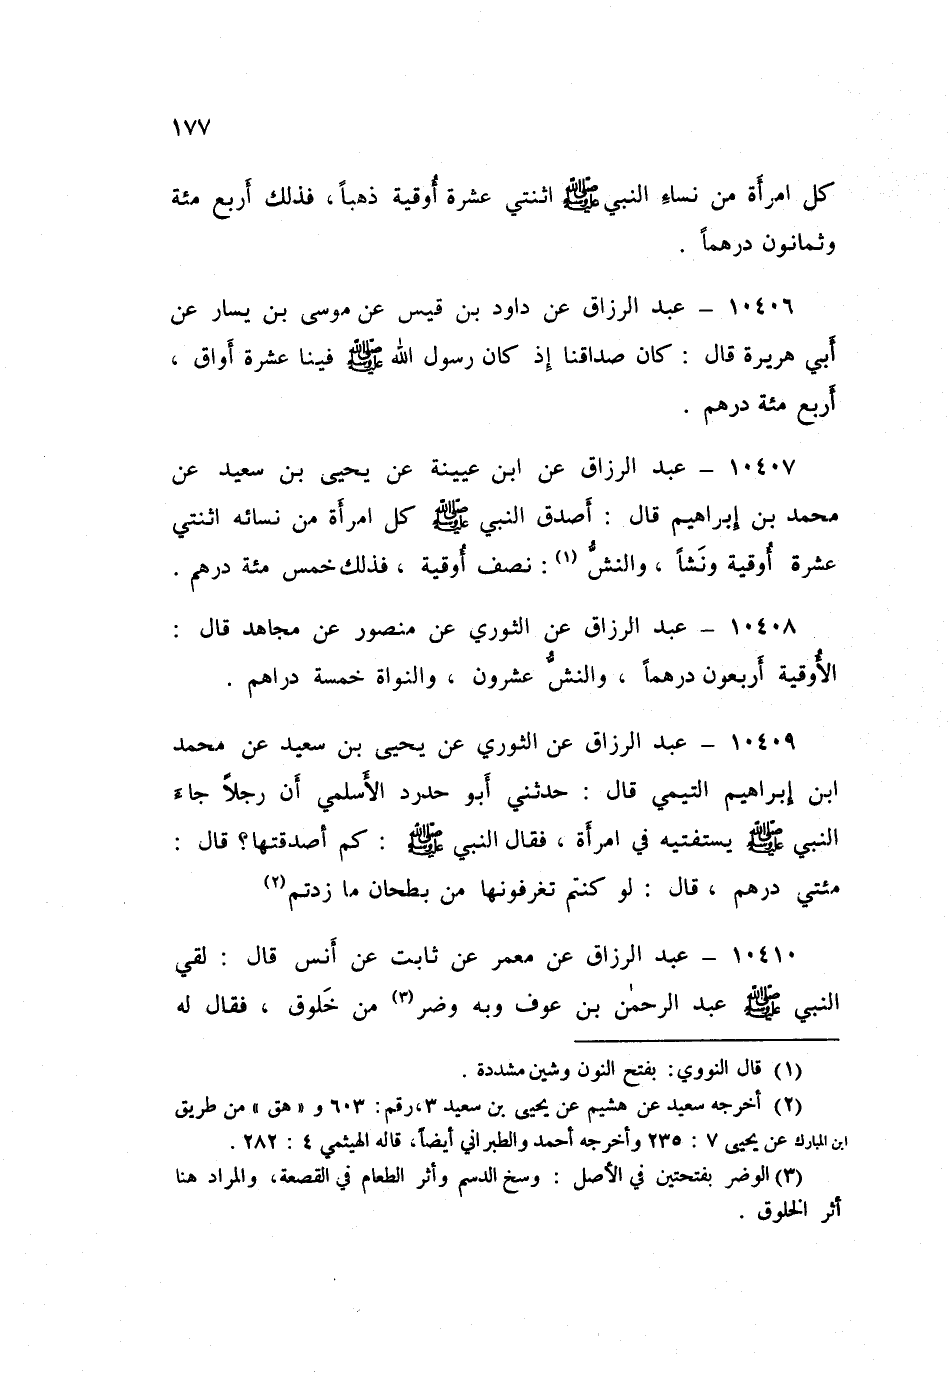 ١٧٧
كل امرأة من نساءِ النبي ﷺ اثنتي عشرة أُوقية ذهباً ، فذلك أَربع مئة
وثمانون درهماً .
١٠٤٠٦ – عبد الرزاق عن داود بن قيس عن موسى بن يسار عن
أَبي هريرة قال : كان صداقنا إذ كان رسول الله ﷺ فينا عشرة أَواق ،
أَربع مئة درهم .
١٠٤٠٧ – عبد الرزاق عن ابن عيينة عن يحيى بن سعيد عن
محمد بن إبراهيم قال : أَصدق النبي ﷺ كل امرأَة من نسائه اثنتي
عشرة أُوقية ونَشاً ، والنشُّ (١) : نصف أُوقية ، فذلك خمس مئة درهم .
١٠٤٠٨ – عبد الرزاق عن الثوري عن منصور عن مجاهد قال :
الأُوقية أَربعون درهماً ، والنشُّ عشرون ، والنواة خمسة دراهم .
١٠٤٠٩ – عبد الرزاق عن الثوري عن يحيى بن سعيد عن محمد
ابن إبراهيم التيمي قال : حدثني أَبو حدرد الأَسلمي أَن رجلاً جاءَ
النبي ﷺ يستفتيه في امرأَة ، فقال النبي ﷺ : كم أَصدقتها؟ قال :
مئتي درهم ، قال : لو كنتم تغرفونها من بطحان ما زدتم (٢)
١٠٤١٠ – عبد الرزاق عن معمر عن ثابت عن أَنس قال : لقي
النبي ﷺ عبد الرحمٰن بن عوف وبه وضر (٣) من خَلوق ، فقال له
(١) قال النووي: بفتح النون وشين مشددة .
(٢) أخرجه سعيد عن هشيم عن يحيى بن سعيد ٣،رقم: ٦٠٣ و « هق » من طريق
ابن المبارك عن يحيى ٧ : ٢٣٥ وأخرجه أحمد والطبراني أيضاً، قاله الهيثمي ٤ : ٢٨٢ .
(٣) الوضر بفتحتين في الأصل : وسخ الدسم وأثر الطعام في القصعة، والمراد هنا
أثر الخلوق .